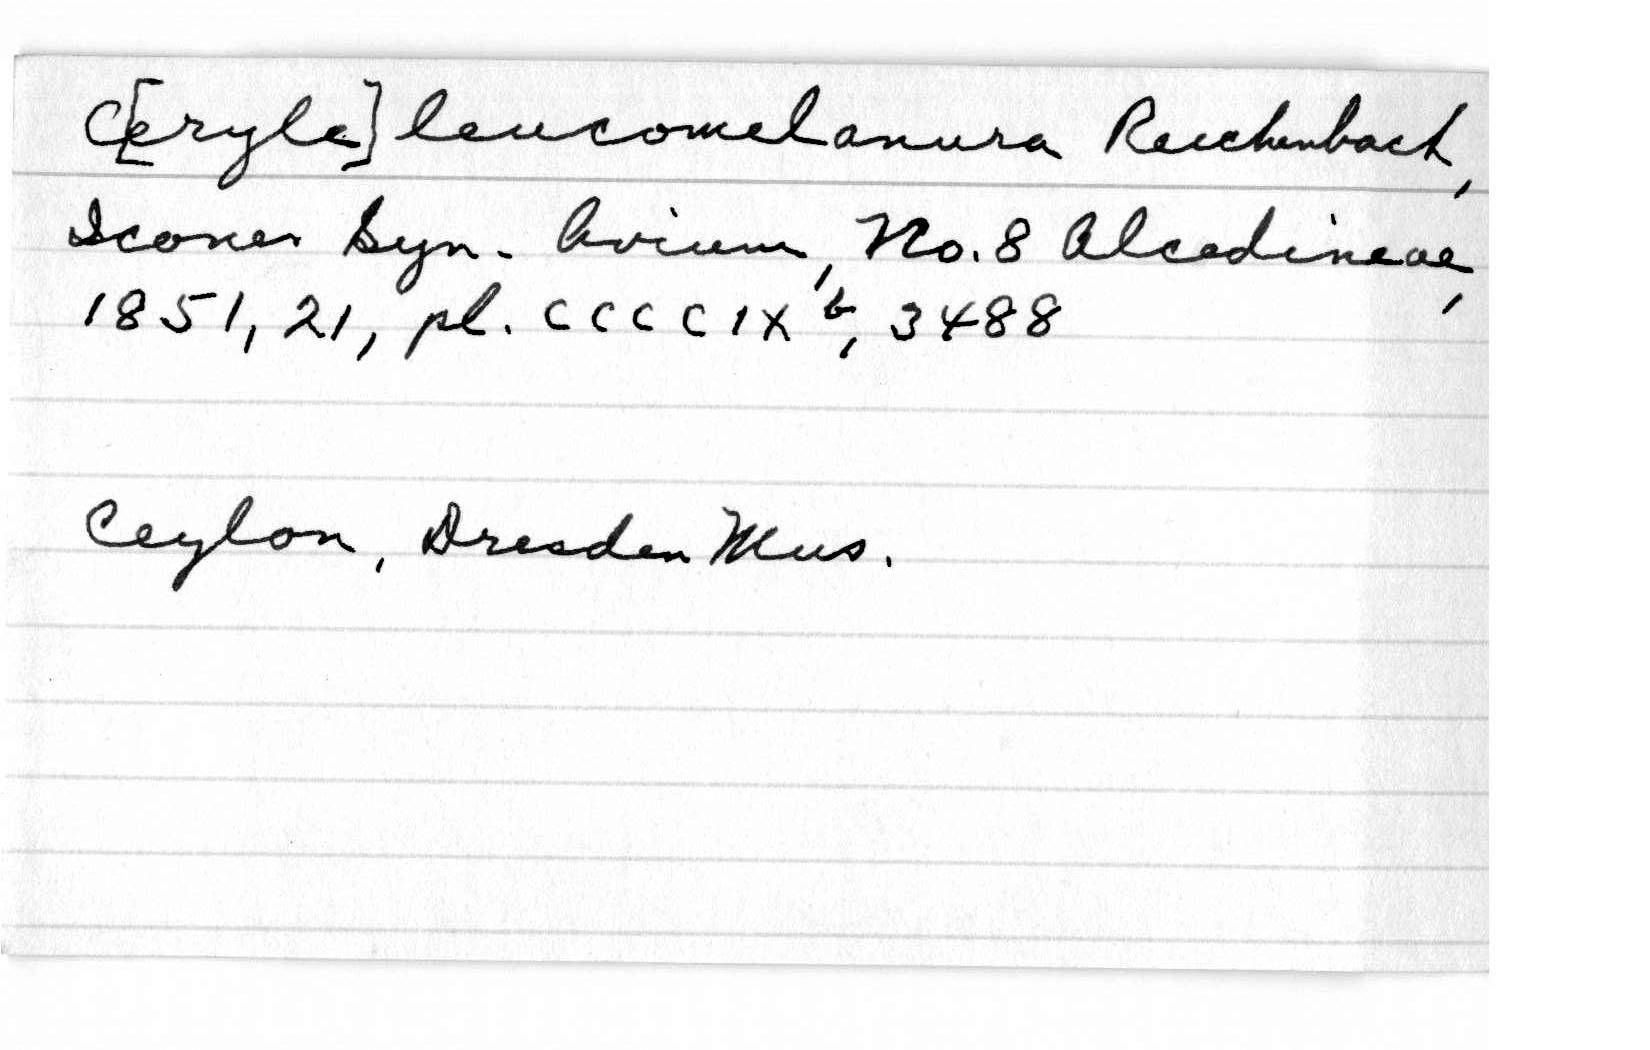 C[eryle] leucomelanura Reichenbach,
Icones Syn. Avium, No. 8 Alcedineae,
1851, 21, pl. CCCCIX b, 3488
Ceylon, Dresden Mus.